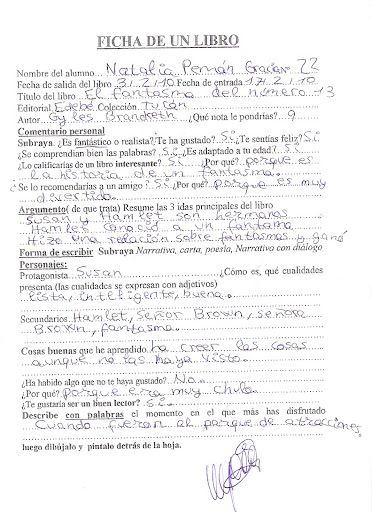 FICHA DE UN LIBRO
Nombre del alumno... Natalia Pernán Gracia 22
Fecha de salida del libro 3/2/10 Fecha de entrada 17/2/10
Título del libro. El fantasma del número 13
Editorial Edebé Colección. Tucán
Autor. Gyles Brandreth ¿Qué nota le pondrías? 9
Comentario personal
Subraya. ¿Es fantástico o realista? Te ha gustado? Sí ¿Te sentías feliz? Sí
¿Se comprendían bien las palabras? Sí ¿Es adaptado a tu edad? Sí
¿Lo calificarías de un libro interesante? Sí ¿Por qué? porque es
la historia de un fantasma.
¿Se lo recomendarías a un amigo? Sí ¿Por qué? porque es muy
divertido.
Argumento( de que trata) Resume las 3 ideas principales del libro
Susan y Hamlet son hermanos
Hamlet conoció a un fantama
Hizo una redación sobre fantasmas y ganó
Forma de escribir Subraya Narrativa, carta, poesía, Narrativa con diálogo
Personajes:
Protagonista. Susan ¿Cómo es, qué cualidades
presenta (las cualidades se expresan con adjetivos)
lista, inteligente, buena.
Secundarios. Hamlet, señor Brown, señora
Brown, fantasma.
Cosas buenas que he aprendido. ha creer las cosas
aunque no las haya visto.
¿Ha habido algo que no te haya gustado? No.
¿Por qué? porque era muy chulo.
¿Te gustaría ser un buen lector? Sí.
Describe con palabras el momento en el que más has disfrutado
Cuando fueron al parque de atracciones.
luego dibújalo y píntalo detrás de la hoja.